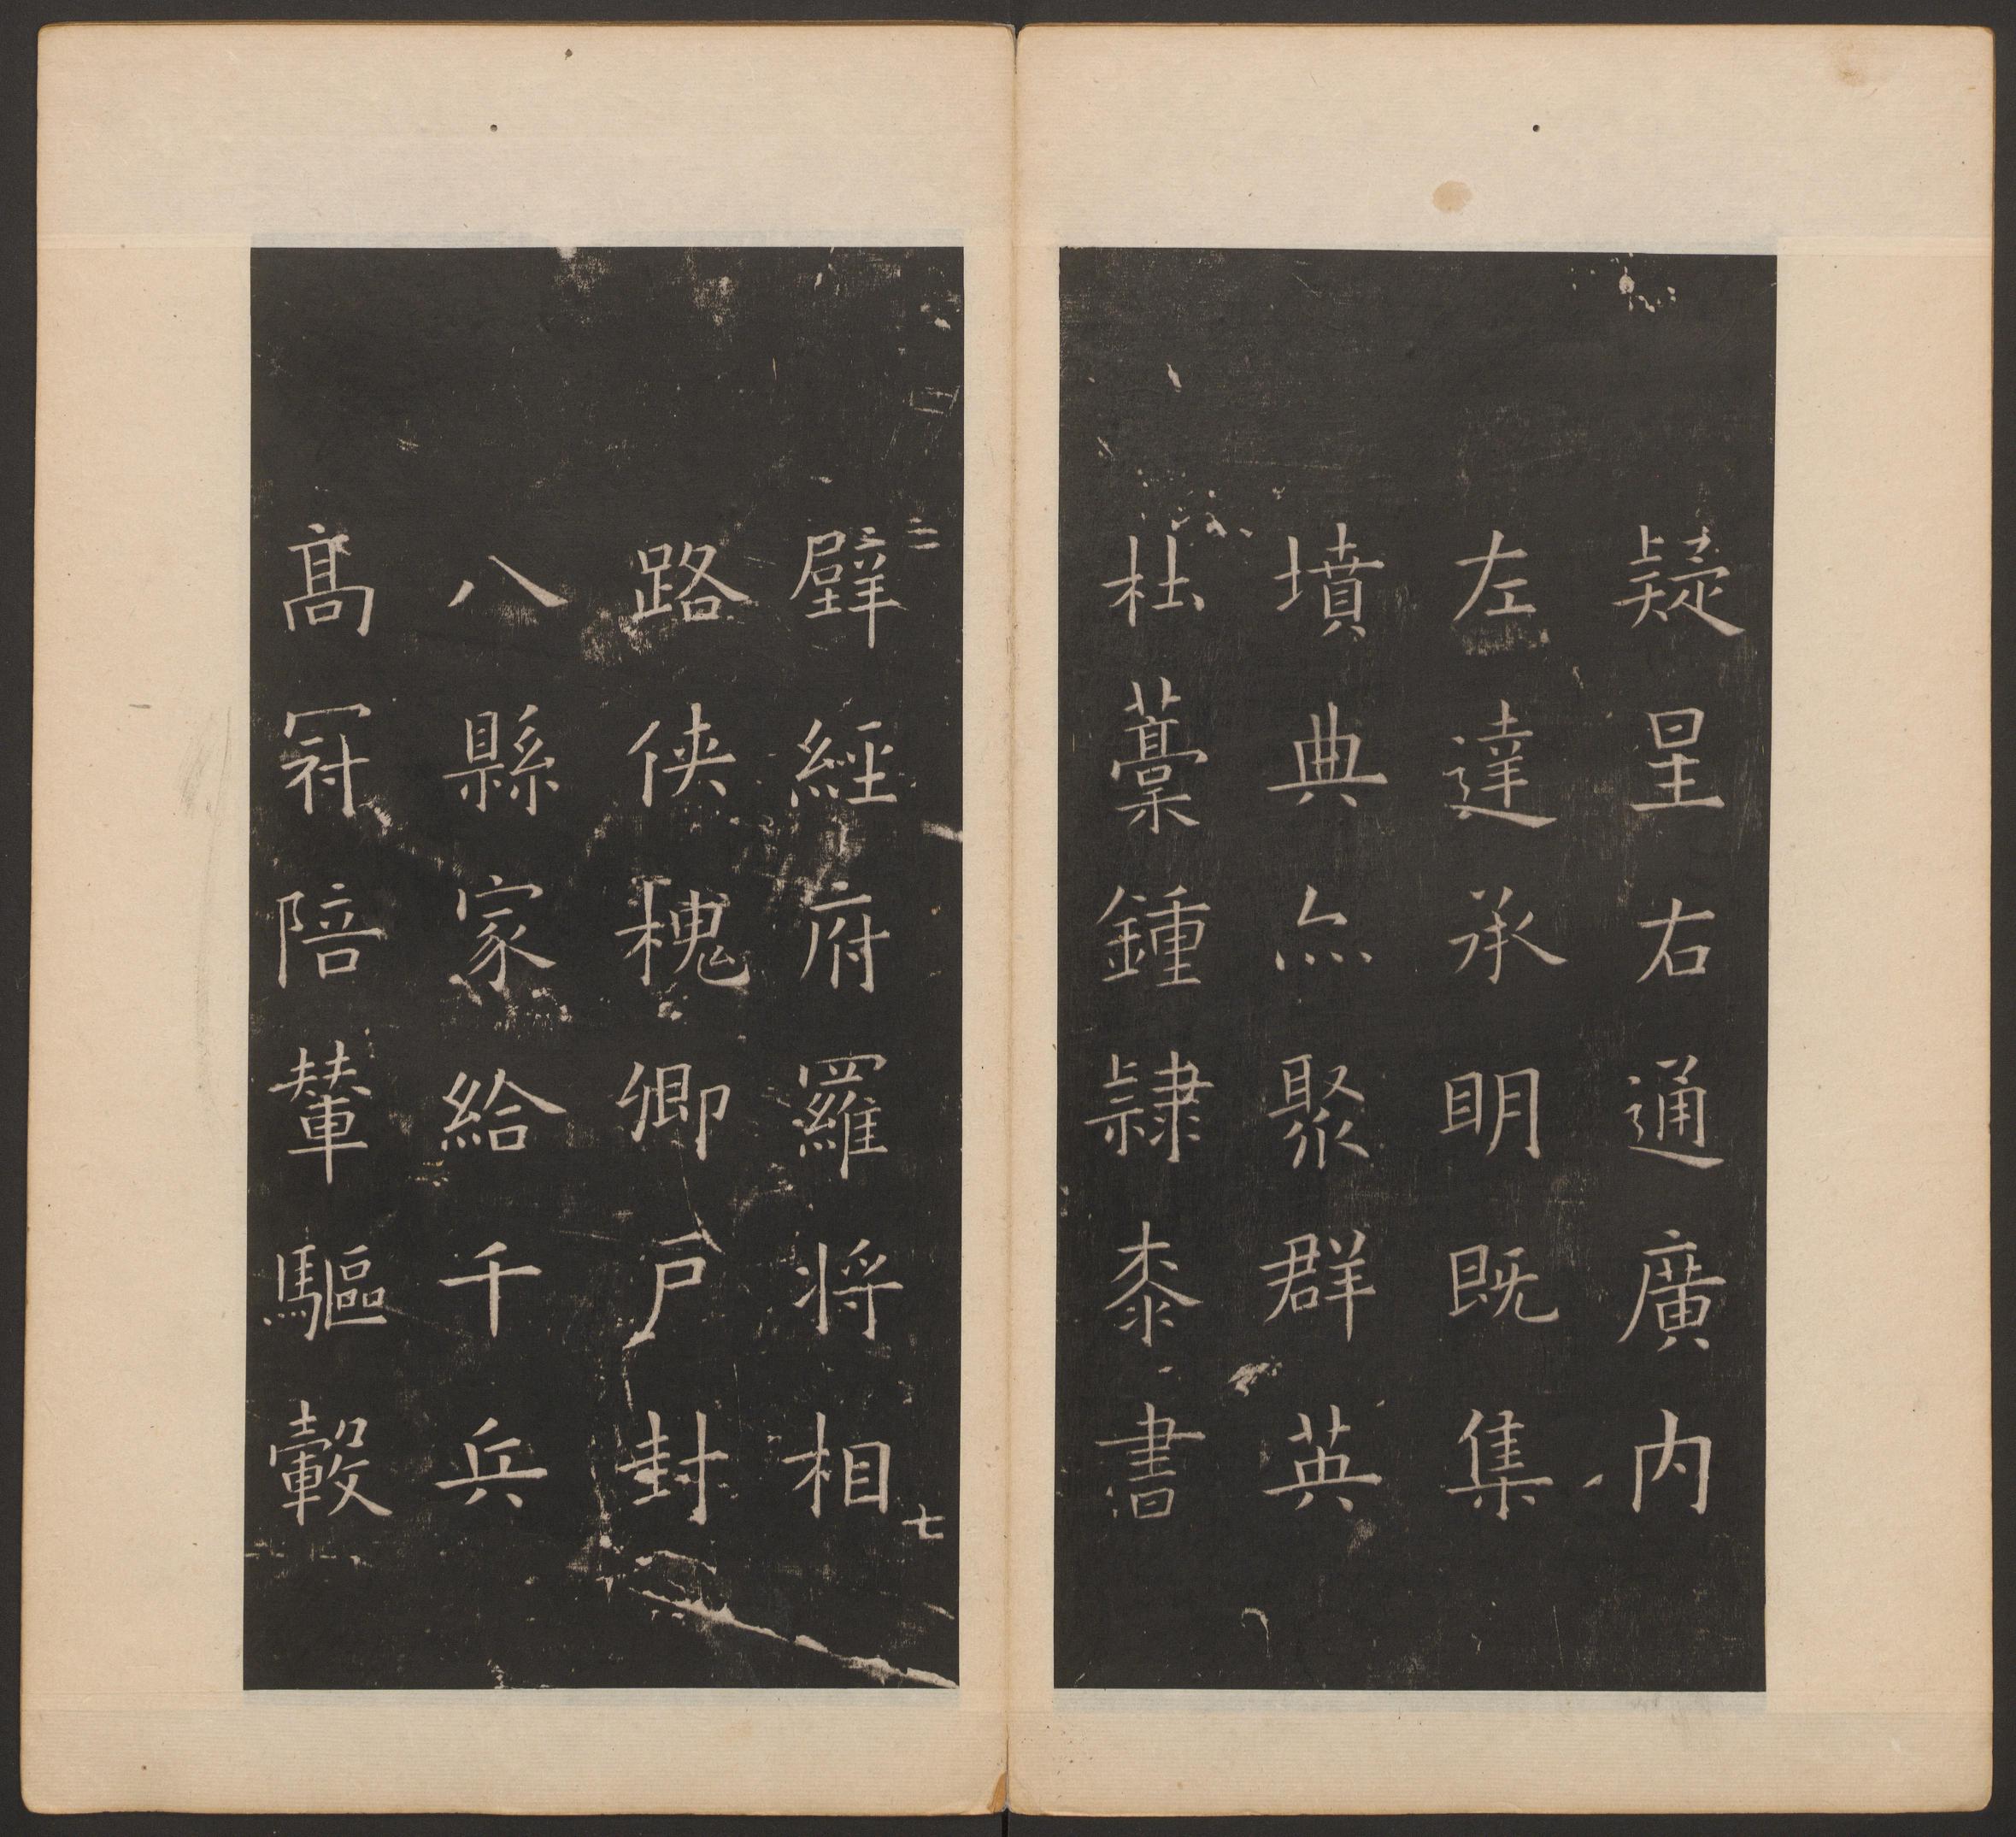 疑星右通廣内
左達承明既集
墳典亦聚群英
杜藁鍾隷桼書
二
壁經府羅将相
七
路俠槐卿戸封
八縣家給千兵
髙冠陪輦驅轂